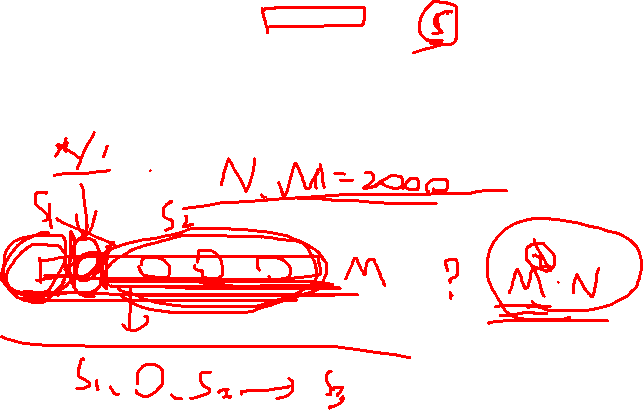 S
*/,
N、M=2000
S1 S2
M ? M² · N
S1、O、S2 → S3